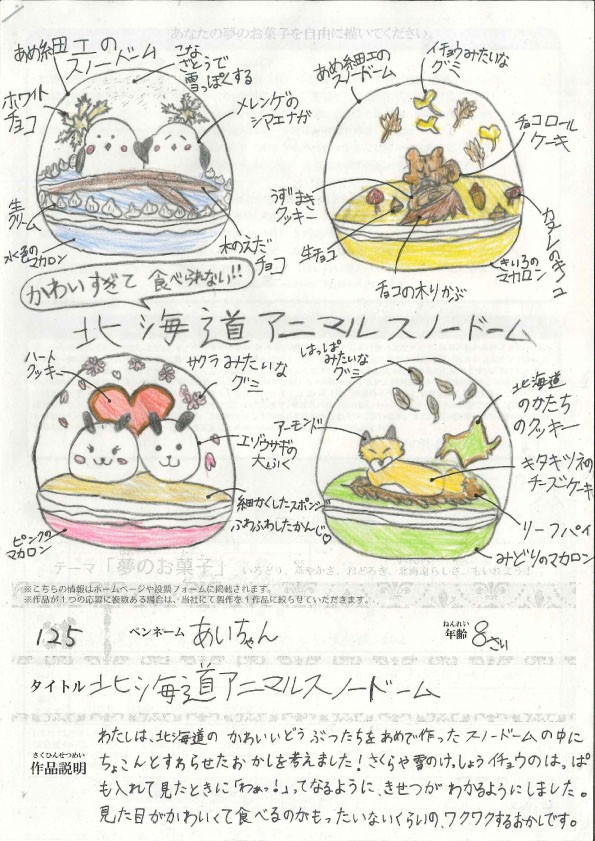 あなたの夢のお菓子を自由に描いてください。
あめ細工の
スノードーム
こな
ざとうで
雪っぽくする
ホワイト
チョコ
メレンゲの
シマエナガ
生
クリーム
水色の
マカロン
木のえだ
チョコ
あめ細工の
スノードーム
イチョウみたいな
グミ
チョコロール
ケーキ
うずまき
クッキー
生チョコ
チョコの木りかぶ
きいろの
マカロン
かわいすぎて 食べられない!!
北海道アニマルスノードーム
ハート
クッキー
サクラみたいな
グミ
エゾウサギの
大ふく
細かくしたスポンジ
ふわふわしたかんじ♡
ピンクの
マカロン
はっぱ
みたいな
グミ
アーモンド
北海道
のかたち
のクッキー
キタキツネの
チーズケーキ
リーフパイ
みどりのマカロン
テーマ「夢のお菓子」
※こちらの情報はホームページや投票フォームに掲載されます。
※作品が１つの応募に複数ある場合は、当社にて製作を１作品に絞らせていただきます。
125 ペンネーム あいちゃん ねんれい 年齢 8さい
タイトル 北海道アニマルスノードーム
さくひんせつめい
作品説明
わたしは、北海道の かわいいどうぶつたちをあめで作ったスノードームの中に
ちょこんとすわらせたおかしを考えました!さくらや雪のけっしょうイチョウのはっぱ
も入れて見たときに「わぁっ!」ってなるように、きせつがわかるようにしました。
見た目がかわいくて食べるのがもったいないくらいの、ワクワクするおかしです。